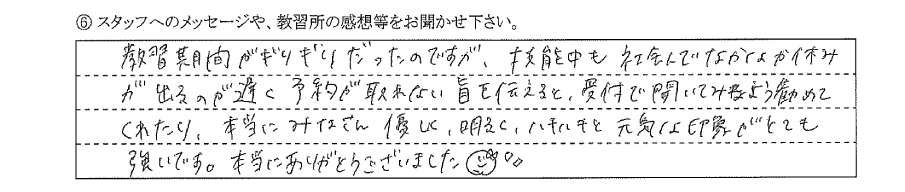 ⑥ スタッフへのメッセージや、教習所の感想等をお聞かせ下さい。
教習期間がぎりぎりだったのですが、技能中も社会人でなかなか休み
が出るのが遅く予約が取れない旨を伝えると、受付で聞いてみるよう勧めて
くれたり、本当にみなさん優しく、明るく、ハキハキと元気な印象がとても
強いです。本当にありがとうございました